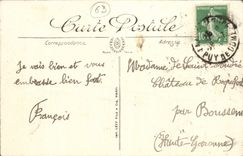 63
Carte Postale
Correspondance
Adresse
PUY DE DOME
Je vais bien et vous
embrasse bien fort.
François
Madame de Saint André
Château de
par Boussens
(Haute Garonne)